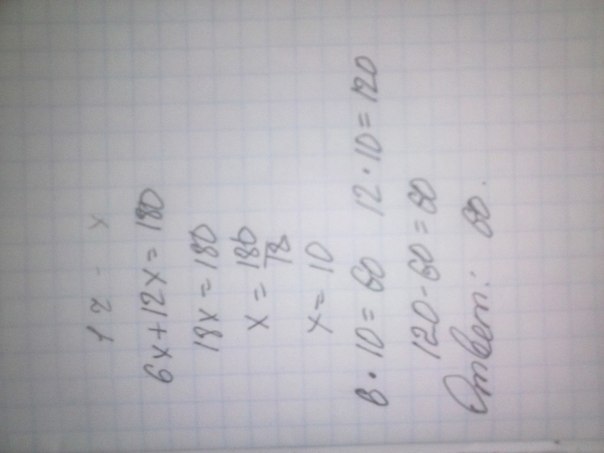 6x+12x=180
18x=180
x=180/18
x=10
6·10=60 12·10=120
120-60=60
Ответ: 60.